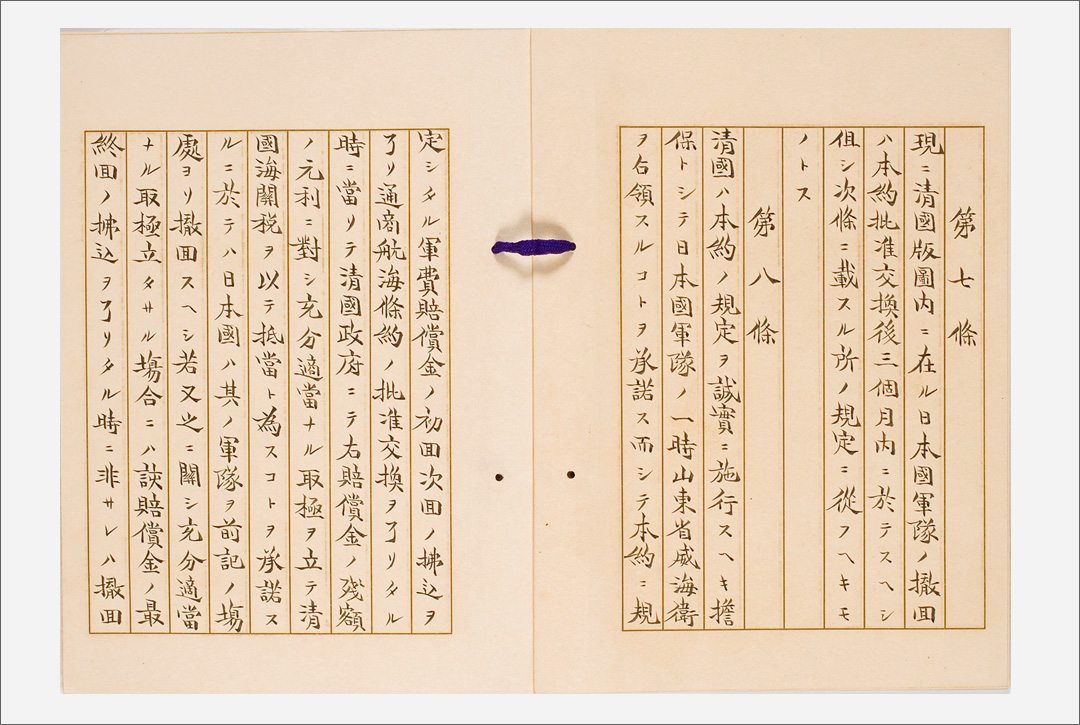 第七條
現ニ清國版圖内ニ在ル日本國軍隊ノ撤回
ハ本約批准交換後三個月内ニ於テスヘシ
但シ次條ニ載スル所ノ規定ニ從フヘキモ
ノトス
第八條
清國ハ本約ノ規定ヲ誠實ニ施行スヘキ擔
保トシテ日本國軍隊ノ一時山東省威海衛
ヲ占領スルコトヲ承諾ス而シテ本約ニ規
定シタル軍費賠償金ノ初回次回ノ拂込ヲ
了リ通商航海條約ノ批准交換ヲ了リタル
時ニ當リテ清國政府ニテ右賠償金ノ殘額
ノ元利ニ對シ充分適當ナル取極ヲ立テ清
國海關税ヲ以テ抵當ト為スコトヲ承諾ス
ルニ於テハ日本國ハ其ノ軍隊ヲ前記ノ場
處ヨリ撤回スヘシ若又之ニ關シ充分適當
ナル取極立タサル場合ニハ該賠償金ノ最
終回ノ拂込ヲ了リタル時ニ非サレハ撤回